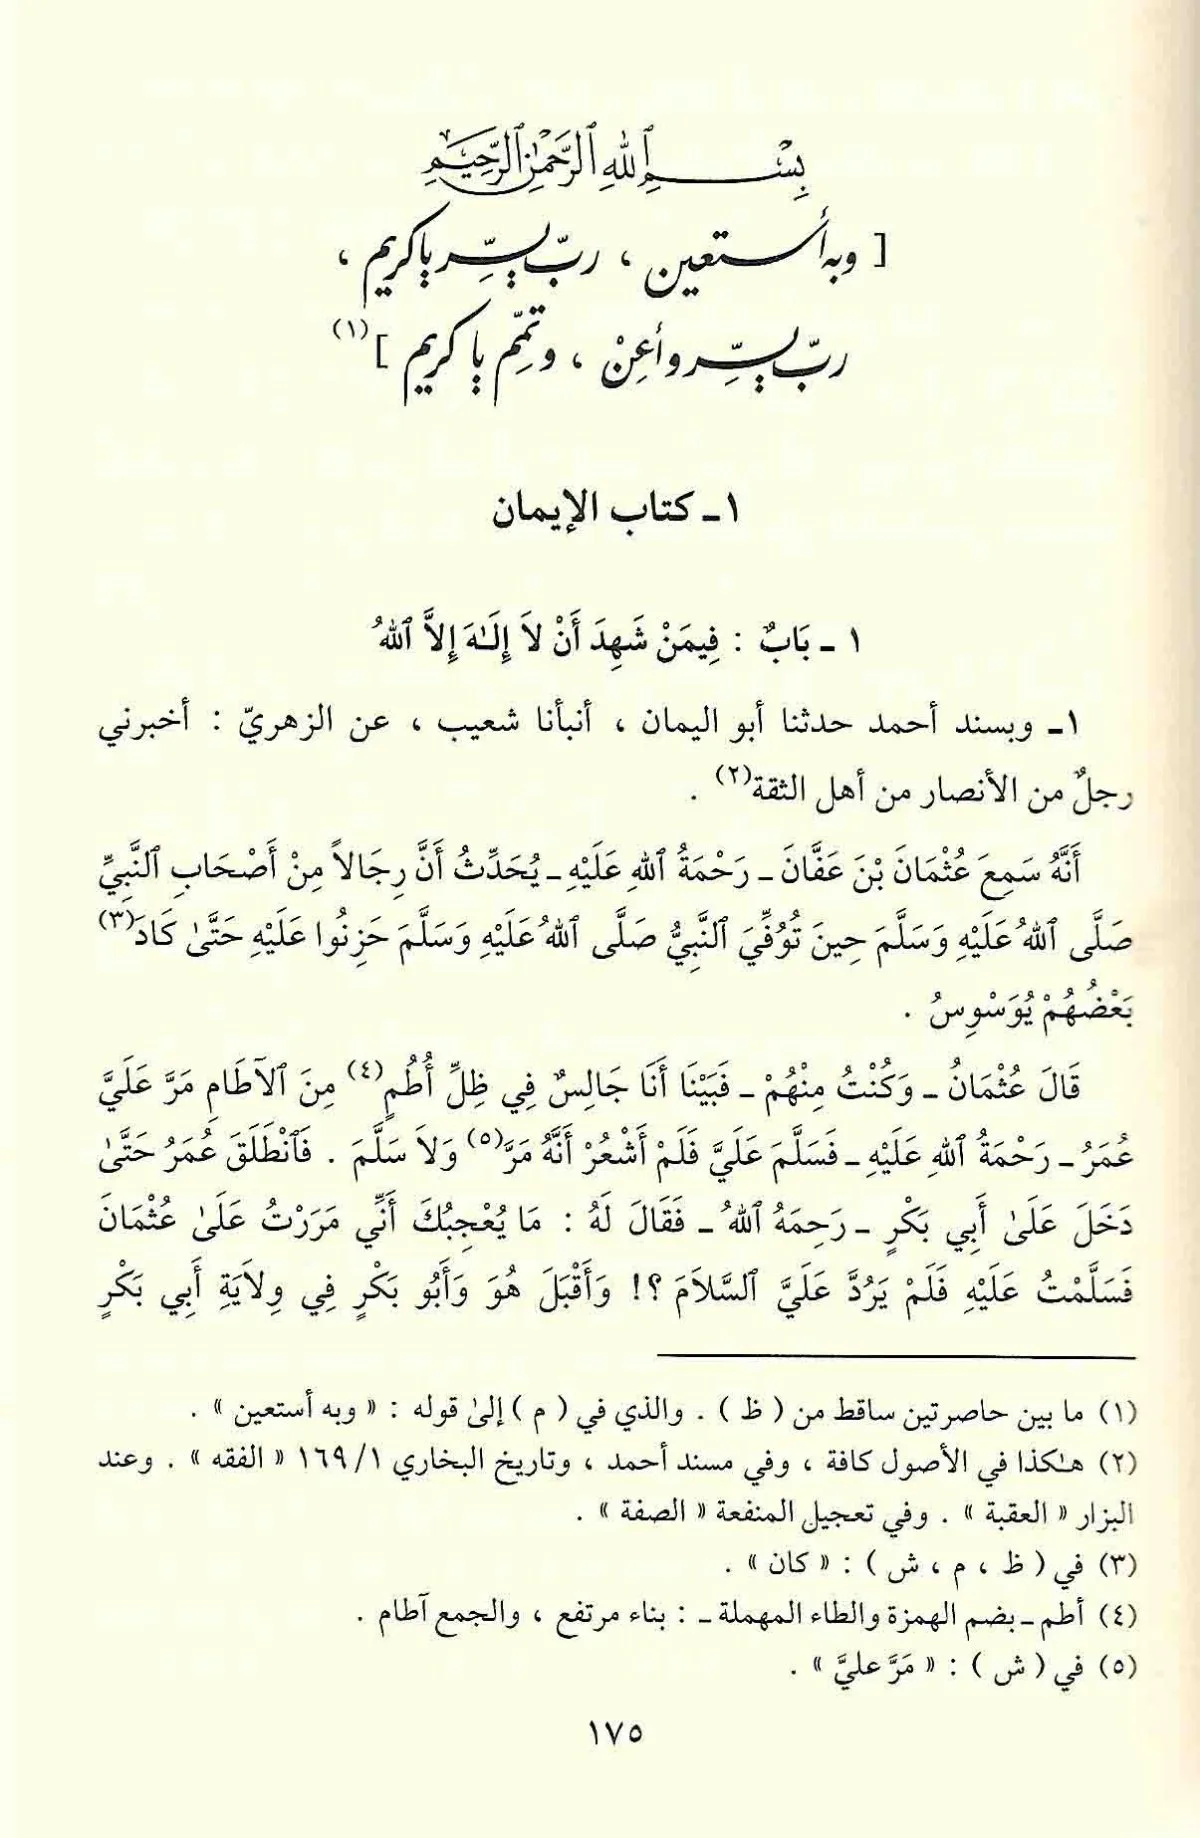 بِسْمِ ٱللهِ ٱلرَّحْمَٰنِ ٱلرَّحِيمِ
[ وبه أستعين ، ربّ يسِّر يا كريم ،
ربّ يسِّر وأعِنْ ، وتمِّم يا كريم ](١)
١ ـ كتاب الإيمان
١ ـ بَابٌ : فِيمَنْ شَهِدَ أَنْ لاَ إِلَـٰهَ إِلاَّ ٱللهُ
١ ـ وبسند أحمد حدثنا أبو اليمان ، أنبأنا شعيب ، عن الزهريّ : أخبرني
رجلٌ من الأنصار من أهل الثقة(٢) .
أَنَّهُ سَمِعَ عُثْمَانَ بْنَ عَفَّانَ ـ رَحْمَةُ ٱللهِ عَلَيْهِ ـ يُحَدِّثُ أَنَّ رِجَالاً مِنْ أَصْحَابِ ٱلنَّبِيِّ
صَلَّى ٱللهُ عَلَيْهِ وَسَلَّمَ حِينَ تُوُفِّيَ ٱلنَّبِيُّ صَلَّى ٱللهُ عَلَيْهِ وَسَلَّمَ حَزِنُوا عَلَيْهِ حَتَّىٰ كَادَ(٣)
بَعْضُهُمْ يُوَسْوِسُ .
قَالَ عُثْمَانُ ـ وَكُنْتُ مِنْهُمْ ـ فَبَيْنَا أَنَا جَالِسٌ فِي ظِلِّ أُطُمٍ(٤) مِنَ ٱلآطَامِ مَرَّ عَلَيَّ
عُمَرُ ـ رَحْمَةُ ٱللهِ عَلَيْهِ ـ فَسَلَّمَ عَلَيَّ فَلَمْ أَشْعُرْ أَنَّهُ مَرَّ(٥) وَلاَ سَلَّمَ . فَٱنْطَلَقَ عُمَرُ حَتَّىٰ
دَخَلَ عَلَىٰ أَبِي بَكْرٍ ـ رَحِمَهُ ٱللهُ ـ فَقَالَ لَهُ : مَا يُعْجِبُكَ أَنِّي مَرَرْتُ عَلَىٰ عُثْمَانَ
فَسَلَّمْتُ عَلَيْهِ فَلَمْ يَرُدَّ عَلَيَّ ٱلسَّلاَمَ ؟! وَأَقْبَلَ هُوَ وَأَبُو بَكْرٍ فِي وِلاَيَةِ أَبِي بَكْرٍ
(١) ما بين حاصرتين ساقط من ( ظ ) . والذي في ( م ) إلىٰ قوله : « وبه أستعين » .
(٢) هـٰكذا في الأصول كافة ، وفي مسند أحمد ، وتاريخ البخاري ١/ ١٦٩ « الفقه » . وعند
البزار « العقبة » . وفي تعجيل المنفعة « الصفة » .
(٣) في ( ظ ، م ، ش ) : « كان » .
(٤) أطم ـ بضم الهمزة والطاء المهملة ـ : بناء مرتفع ، والجمع آطام .
(٥) في ( ش ) : « مَرَّ عليَّ » .
١٧٥